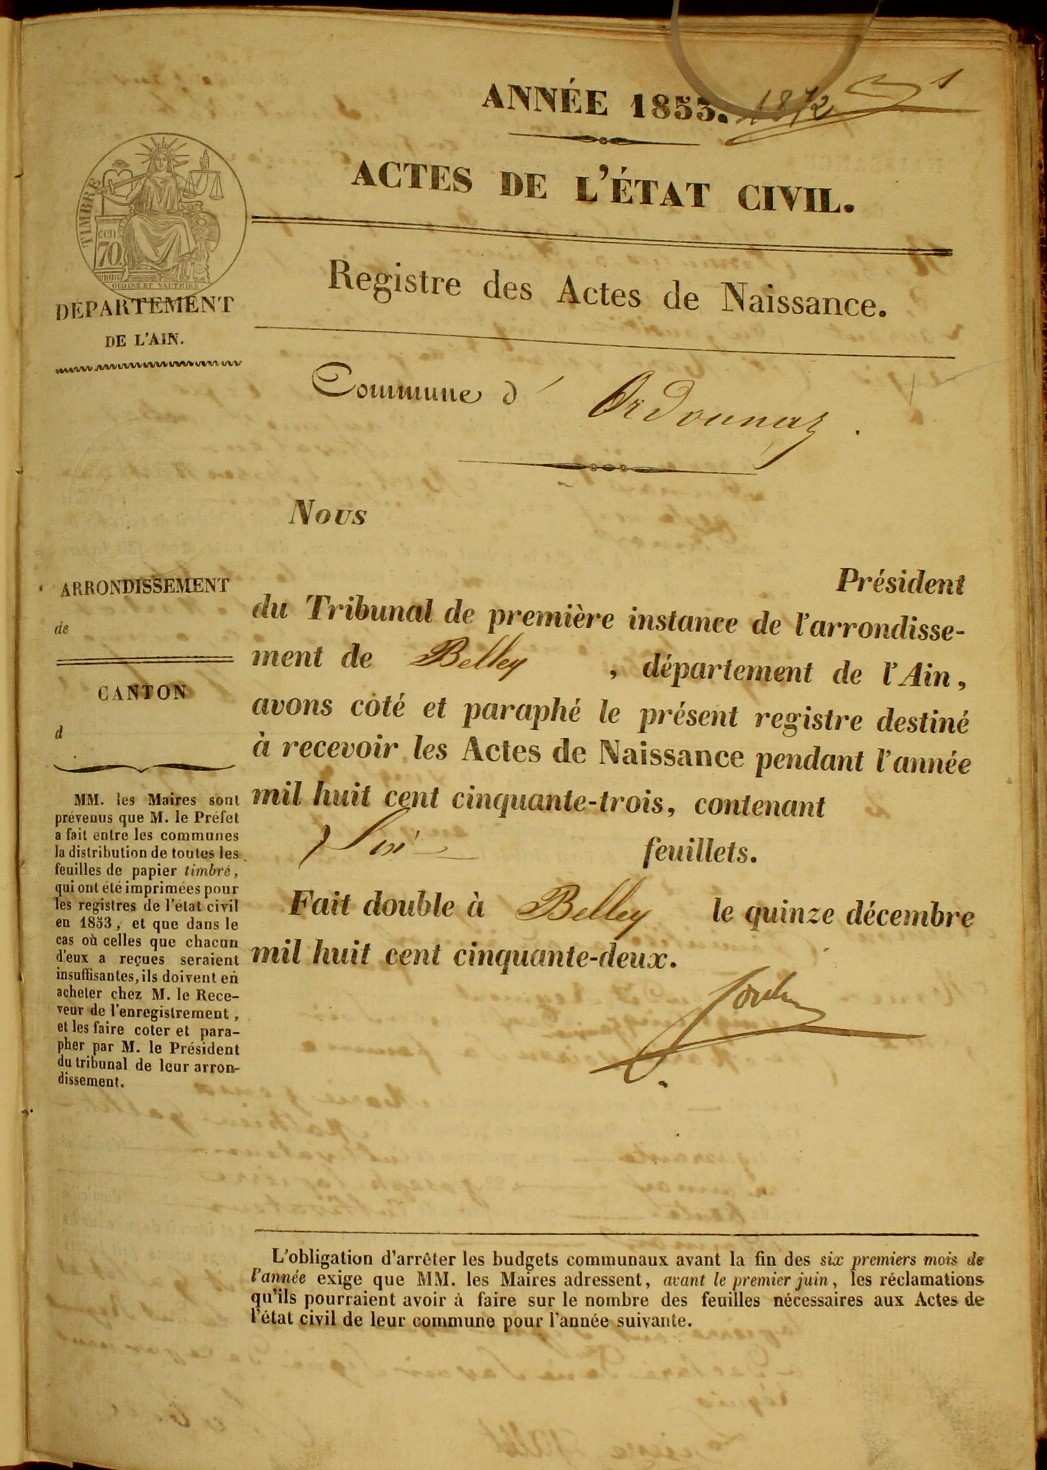 ANNÉE 1853. 1812 1
ACTES DE L'ÉTAT CIVIL.
TIMBRE
CEN
70
DÉPARTEMENT
DE L'AIN.
Registre des Actes de Naissance.
Commune d' Ordonnaz.
Nous
Président
du Tribunal de première instance de l'arrondisse-
ment de Belley, département de l'Ain,
avons coté et paraphé le présent registre destiné
à recevoir les Actes de Naissance pendant l'année
mil huit cent cinquante-trois, contenant
Six feuillets.
Fait double à Belley le quinze décembre
mil huit cent cinquante-deux.
ARRONDISSEMENT
de
CANTON
d
MM. les Maires sont
prévenus que M. le Préfet
a fait entre les communes
la distribution de toutes les
feuilles de papier timbré,
qui ont été imprimées pour
les registres de l'état civil
en 1853, et que dans le
cas où celles que chacun
d'eux a reçues seraient
insuffisantes, ils doivent en
acheter chez M. le Rece-
veur de l'enregistrement,
et les faire coter et para-
pher par M. le Président
du tribunal de leur arron-
dissement.
L'obligation d'arrêter les budgets communaux avant la fin des six premiers mois de
l'année exige que MM. les Maires adressent, avant le premier juin, les réclamations
qu'ils pourraient avoir à faire sur le nombre des feuilles nécessaires aux Actes de
l'état civil de leur commune pour l'année suivante.